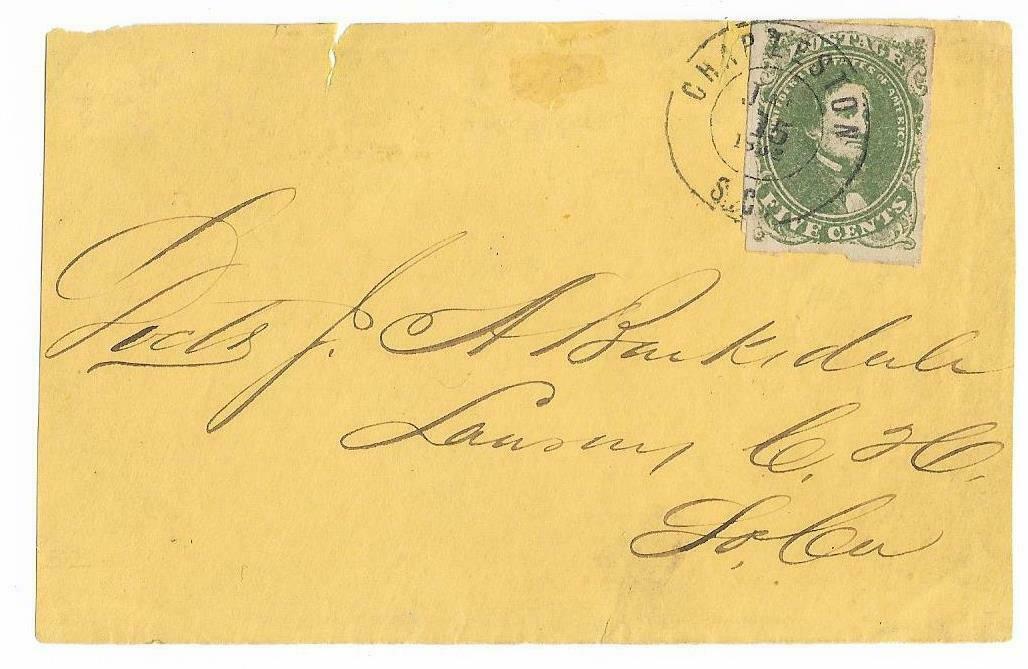 CHARLESTON
S.C.
POSTAGE
CONFEDERATE STATES OF AMERICA
FIVE CENTS
Doctr J. A Barksdale
Laurens C. H.
So. Ca